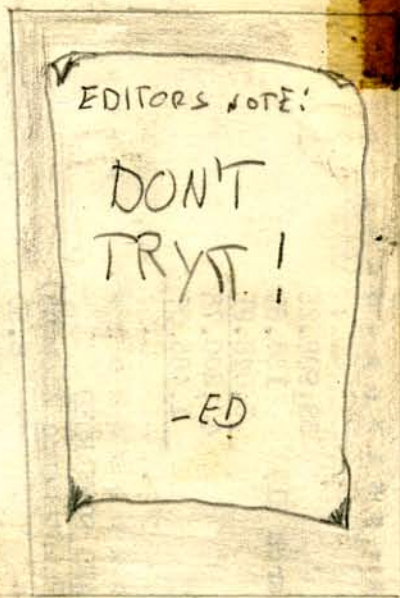 EDITORS NOTE:
DON'T
TRYIT!
-ED